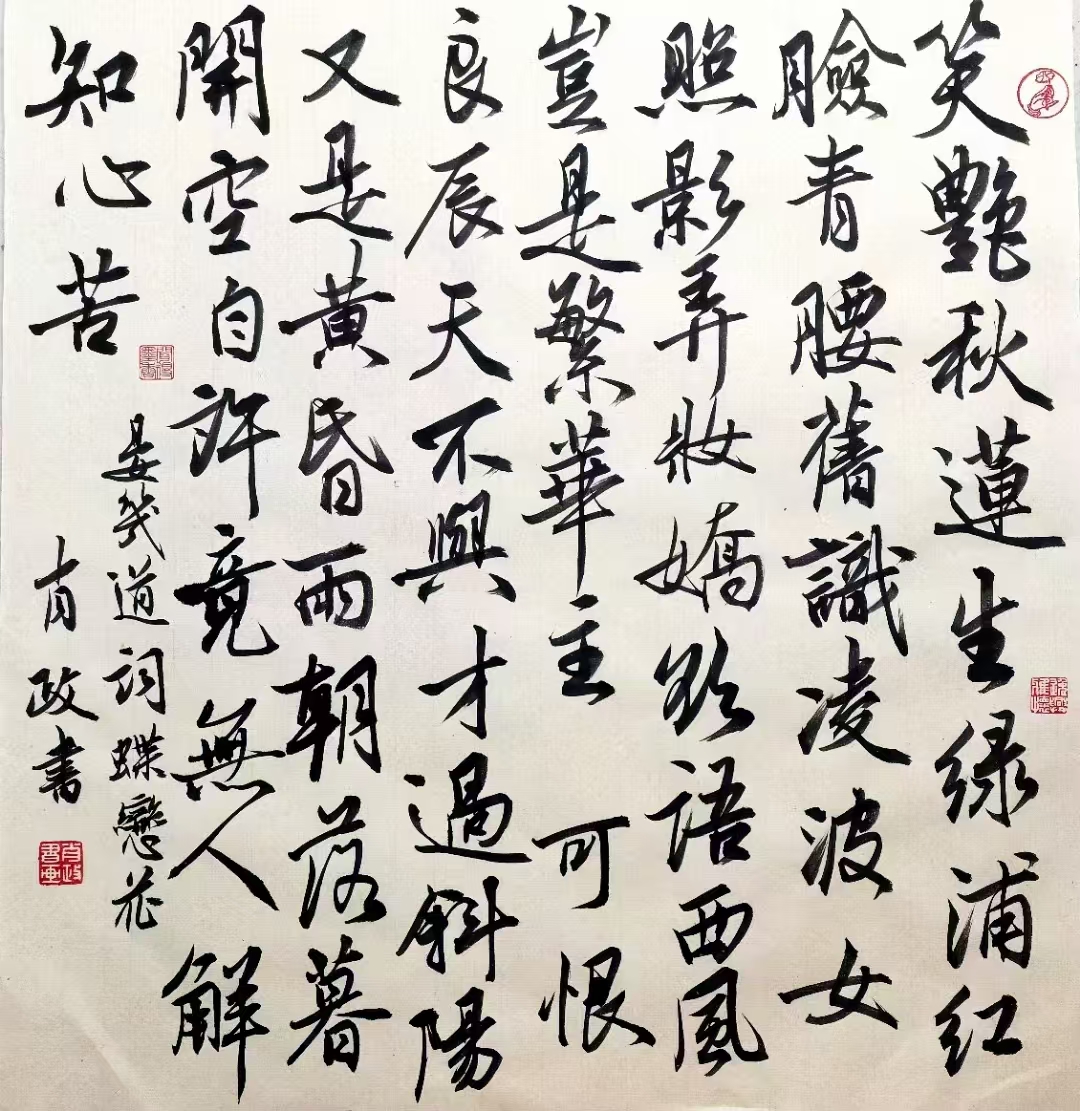 笑艷秋蓮生绿浦红
臉青腰舊識凌波女
照影弄妝嬌欲語西風
豈是繁華主可恨
良辰天不與才過斜陽
又是黄昏雨朝落暮
開空自許竟無人解
知心苦
晏幾道词蝶戀花
肯政書